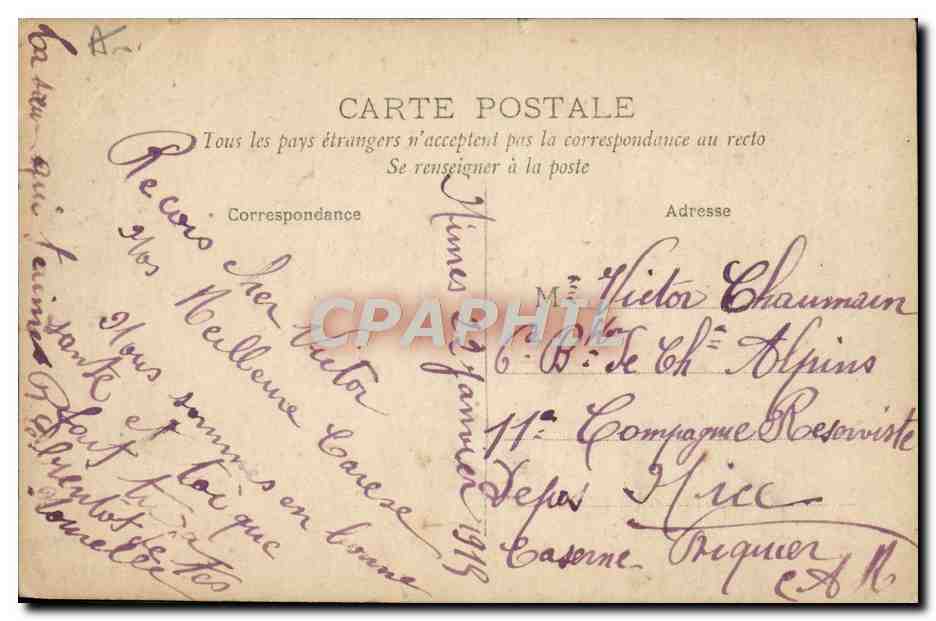 CARTE POSTALE
Tous les pays étrangers n'acceptent pas la correspondance au recto
Se renseigner à la poste
Correspondance
Adresse
Nimes 22 Janvier 1915
Recois Cher Victor
Nos Meilleure Carese
Nous sommes en bonne
santé et toi que
fait tu a
La sœur qui t'aime
M. Victor Chaumain
6e Bon de Chs Alpins
11e Compagnie Reserviste
Depos Nice
Caserne Riquier
A M
CPAPHIL